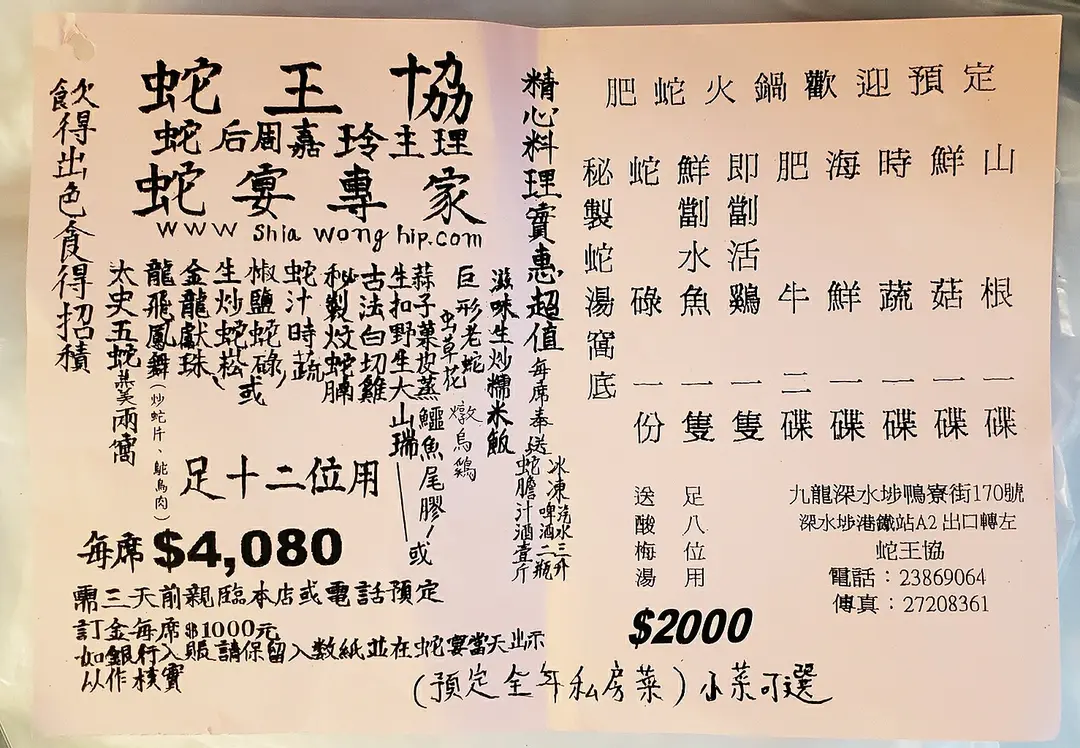 飲得出色食得招積
蛇王協
蛇后周嘉玲主理
蛇宴專家
www shia wong hip.com
太史五蛇羹兩窩
龍飛鳳舞(炒蛇片、鴕鳥肉)
金龍獻珠
生炒蛇松、
椒鹽蛇碌/或
蛇汁時蔬
秘製炆蛇腩
古法白切雞
生扣野生大山瑞——或
蒜子菓皮蒸鱷魚尾膠/
巨形老蛇
虫草花燉烏鷄
滋味生炒糯米飯
足十二位用
每席 $4,080
需三天前親臨本店或電話預定
訂金每席$1000元
如銀行入賬請保留入數紙並在蛇宴當天出示
以作核實
精心料理實惠超值
每席奉送
冰凍汽水三升
啤酒二瓶
蛇膽汁酒壹斤
肥蛇火鍋歡迎預定
秘製蛇湯窩底
蛇碌一份
鮮劏水魚一隻
即劏活鷄一隻
肥牛二碟
海鮮一碟
時蔬一碟
鮮菇一碟
山根一碟
送酸梅湯
足八位用
$2000
九龍深水埗鴨寮街170號
深水埗港鐵站A2出口轉左
蛇王協
電話：23869064
傳真：27208361
(預定全年私房菜)小菜可選